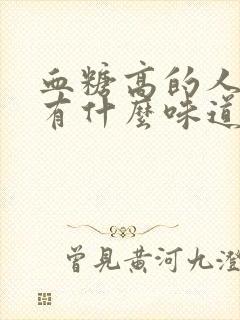 血糖高的人
有什麼味道
曾見黃河九澄